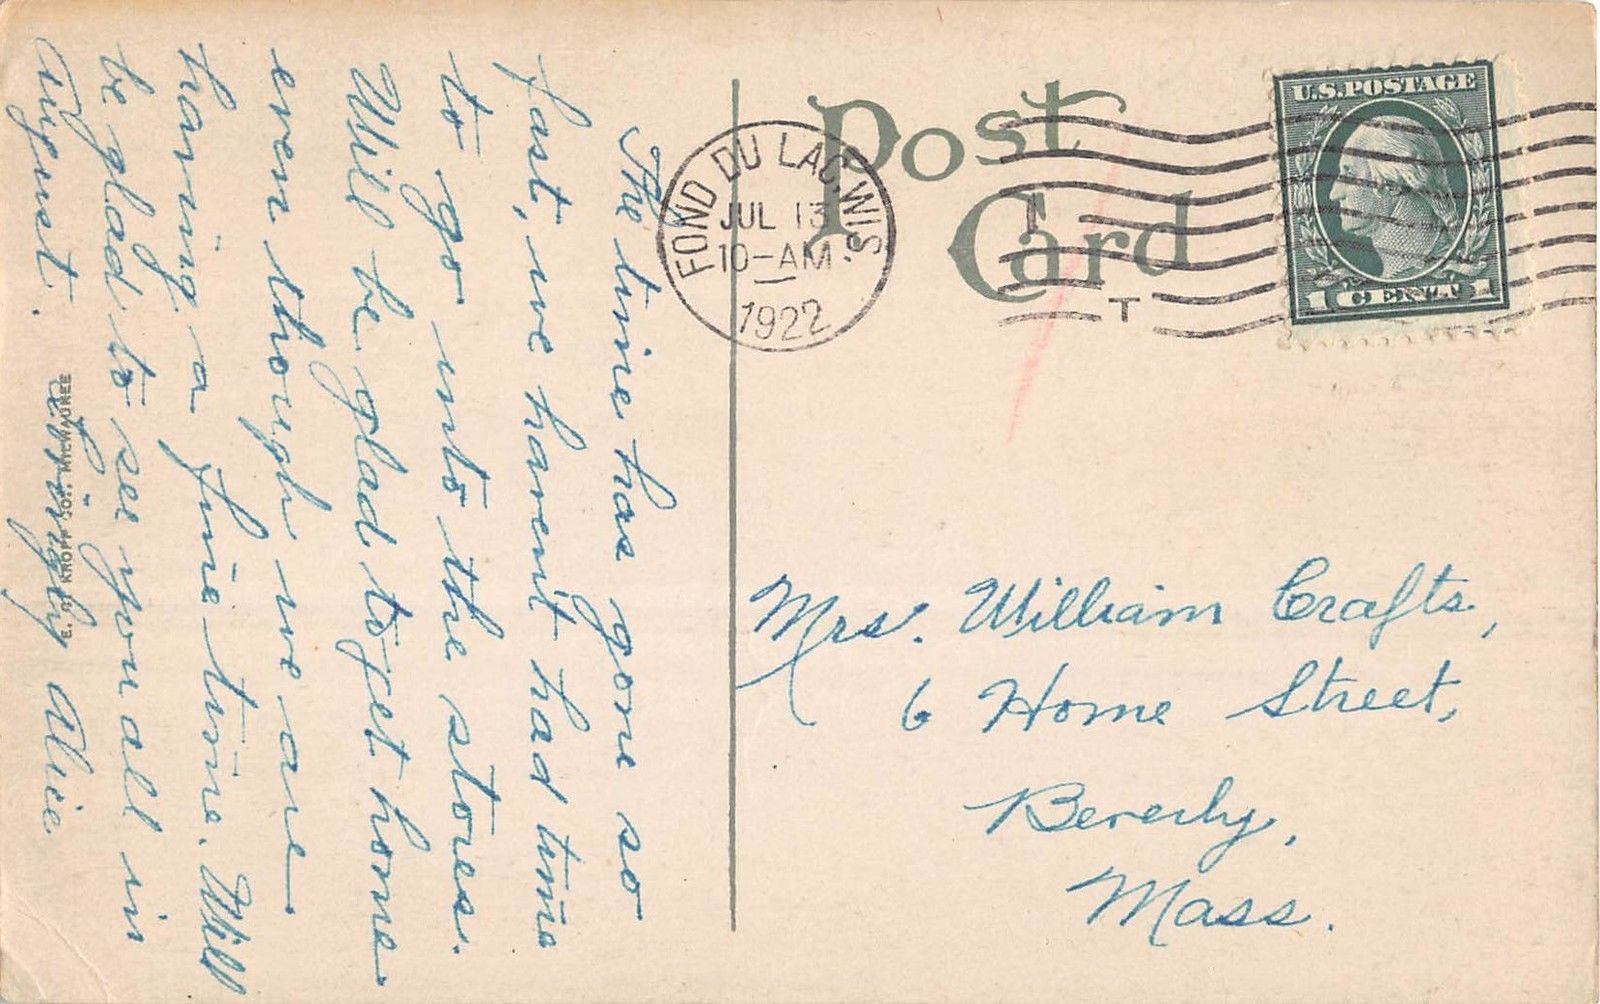 The time has gone so
fast, we havent had time
to go into the stores.
Will be glad to get home
even though we are
having a fine time. Will
be glad to see you all in
August.
Alice
E. C. KROPP CO., MILWAUKEE
Post
Card
FOND DU LAC, WIS.
JUL 13
10-AM
1922
U.S. POSTAGE
1 CENT 1
Mrs. William Crafts,
6 Home Street,
Beverly,
Mass.